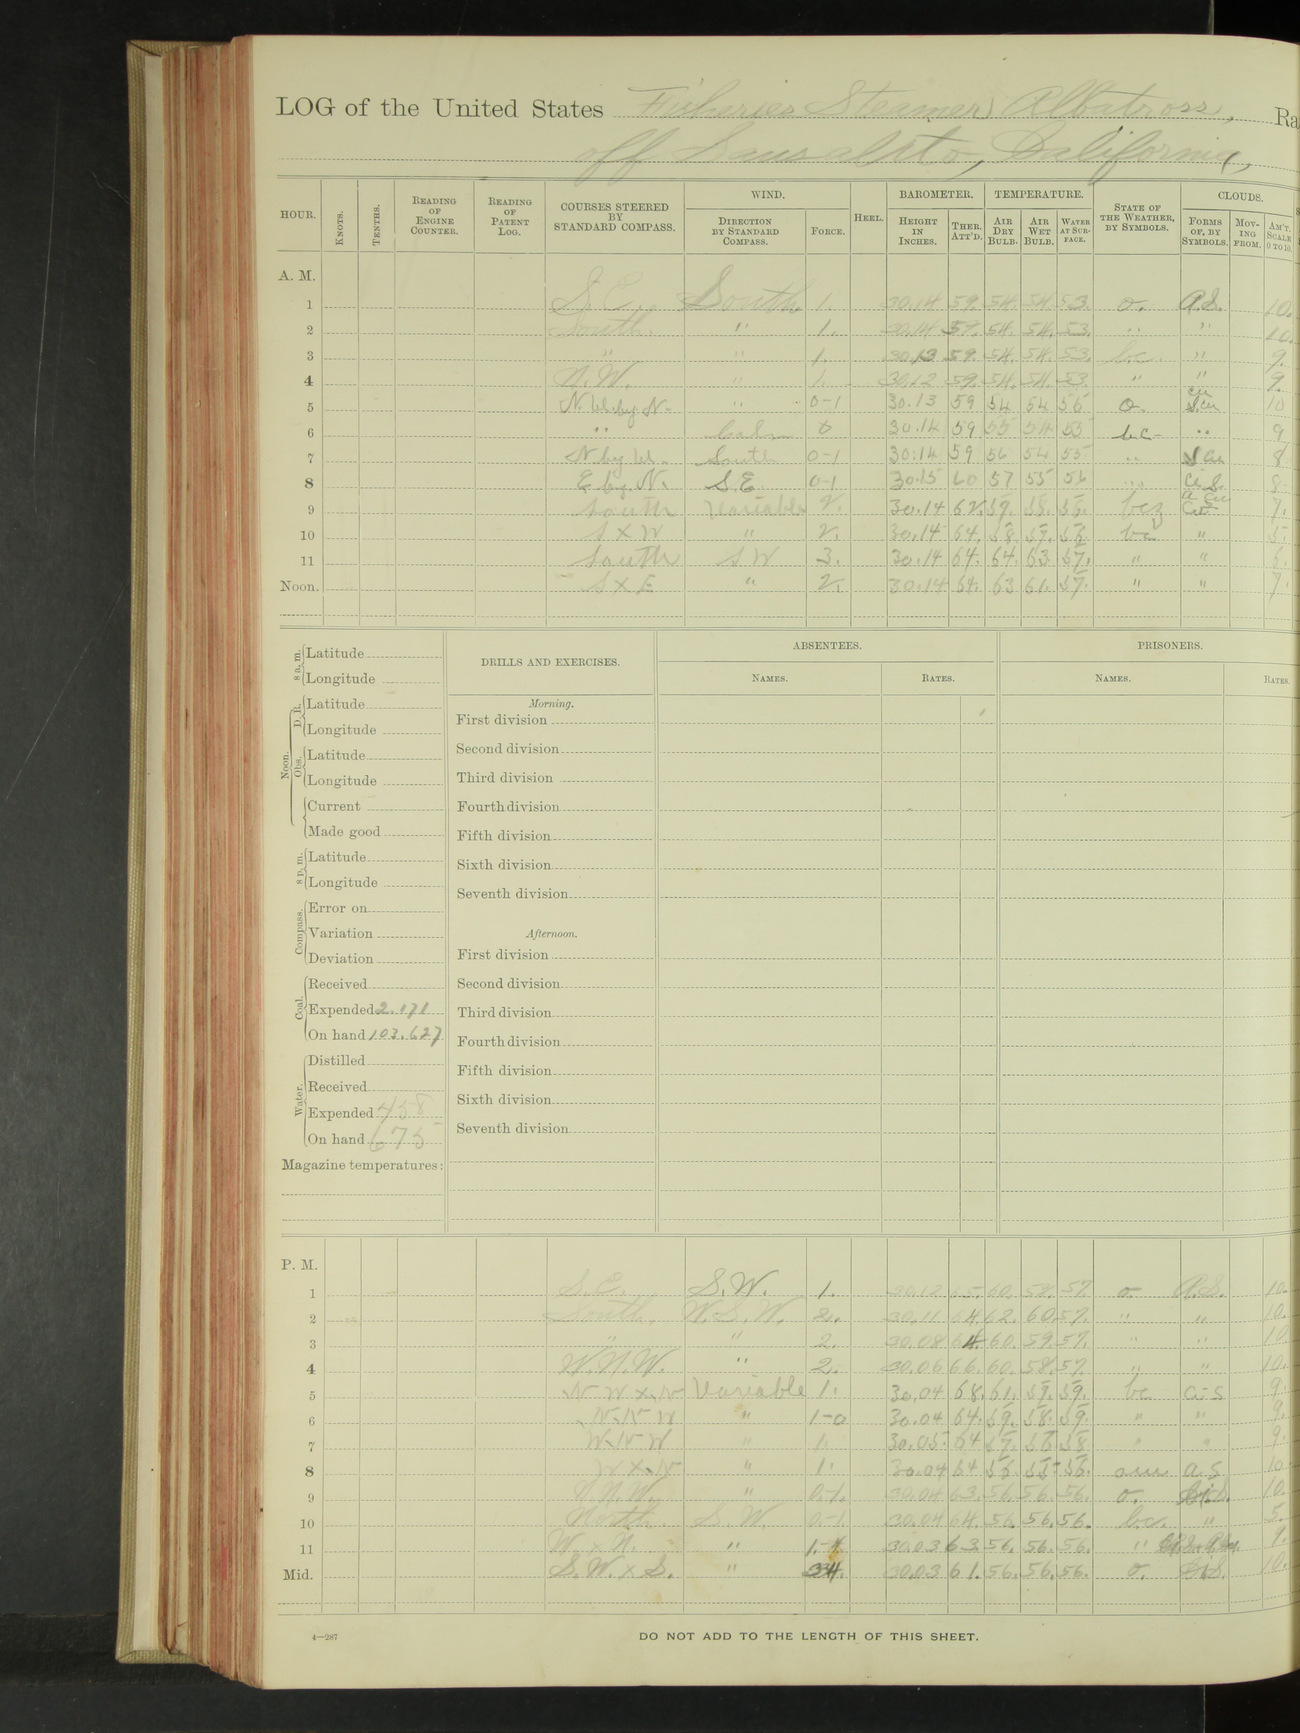 LOG of the United States Fisheries Steamer Albatross, Ra
off Sausalito, California,
HOUR. KNOTS. TENTHS. READING OF ENGINE COUNTER. READING OF PATENT LOG. COURSES STEERED BY STANDARD COMPASS. WIND. DIRECTION BY STANDARD COMPASS. FORCE. HEEL. BAROMETER. HEIGHT IN INCHES. THER. ATT'D. TEMPERATURE. AIR DRY BULB. AIR WET BULB. WATER AT SURFACE. STATE OF THE WEATHER, BY SYMBOLS. CLOUDS. FORMS OF, BY SYMBOLS. MOVING FROM. AM'T. SCALE 0 TO 10.
A. M.
1 S.E. South 1. 30.14 59. 54. 54. 53. o. A.S. 10.
2 South. " 1. 30.14 59. 54. 54. 53. " " 10.
3 " " 1. 30.13 59. 54. 54. 53. bc. " 9.
4 N.W. " 1. 30.12 59. 54. 54. 53. " " 9.
5 N.W. by N. " 0-1 30.13 59 54 54 55 o. cu S.cu 10
6 " Calm 0 30.14 59 55 54 55 bc- " 9
7 N by W. South 0-1 30.14 59 56 54 55 " S cu 8
8 E by N. S.E. 0-1 30.15 60 57 55 56 " Ci S. 8.
9 South Variable 2. 30.14 62. 59. 58. 56. bcz 7.
10 S x W " 2. 30.14 64. 58. 57. 56. bc " 5.
11 South SW 3. 30.14 64. 64. 63. 57. " " 6.
Noon. S x E " 2. 30.14 64. 63 61. 57. " " 7.
8 a.m. Latitude
Longitude
Noon. D. R. Latitude
Longitude
Obs. Latitude
Longitude
Current
Made good
8 p.m. Latitude
Longitude
Compass. Error on
Variation
Deviation
Coal. Received
Expended 2.171
On hand 103.627
Water. Distilled
Received
Expended 458
On hand 675
Magazine temperatures:
DRILLS AND EXERCISES.
Morning.
First division
Second division
Third division
Fourth division
Fifth division
Sixth division
Seventh division
Afternoon.
First division
Second division
Third division
Fourth division
Fifth division
Sixth division
Seventh division
ABSENTEES.
NAMES. RATES.
PRISONERS.
NAMES. RATES.
P. M.
1 S.E. S.W. 1. 30.12 65. 60. 58. 57. o A.S. 10.
2 South. W.S.W. 2. 30.11 64. 62. 60. 57. " " 10.
3 " " 2. 30.08 64. 60. 59. 57. " " 10.
4 W.N.W. " 2. 30.06 66. 60. 58. 57. " " 10.
5 NW x W Variable 1. 30.04 68. 61. 59. 59. bc Ci-S 9.
6 N.N.W " 1-0 30.04 64. 59. 58. 59. " " 9.
7 W.N.W " 1. 30.05 64 57. 56 58 " " 9.
8 W x N " 1. 30.04 64 56. 55. 56. a.s 10
9 N.N.W. " 0-1. 30.04 63. 56. 56. 56. o. 10.
10 North. S.W. 0-1 30.04 64. 56. 56. 56. bc. " 5.
11 W. x N. " 30.03 63. 56. 56. 56. "
Mid. S.W. x S. " 30.03 61. 56. 56. 56. o.
4—287
DO NOT ADD TO THE LENGTH OF THIS SHEET.